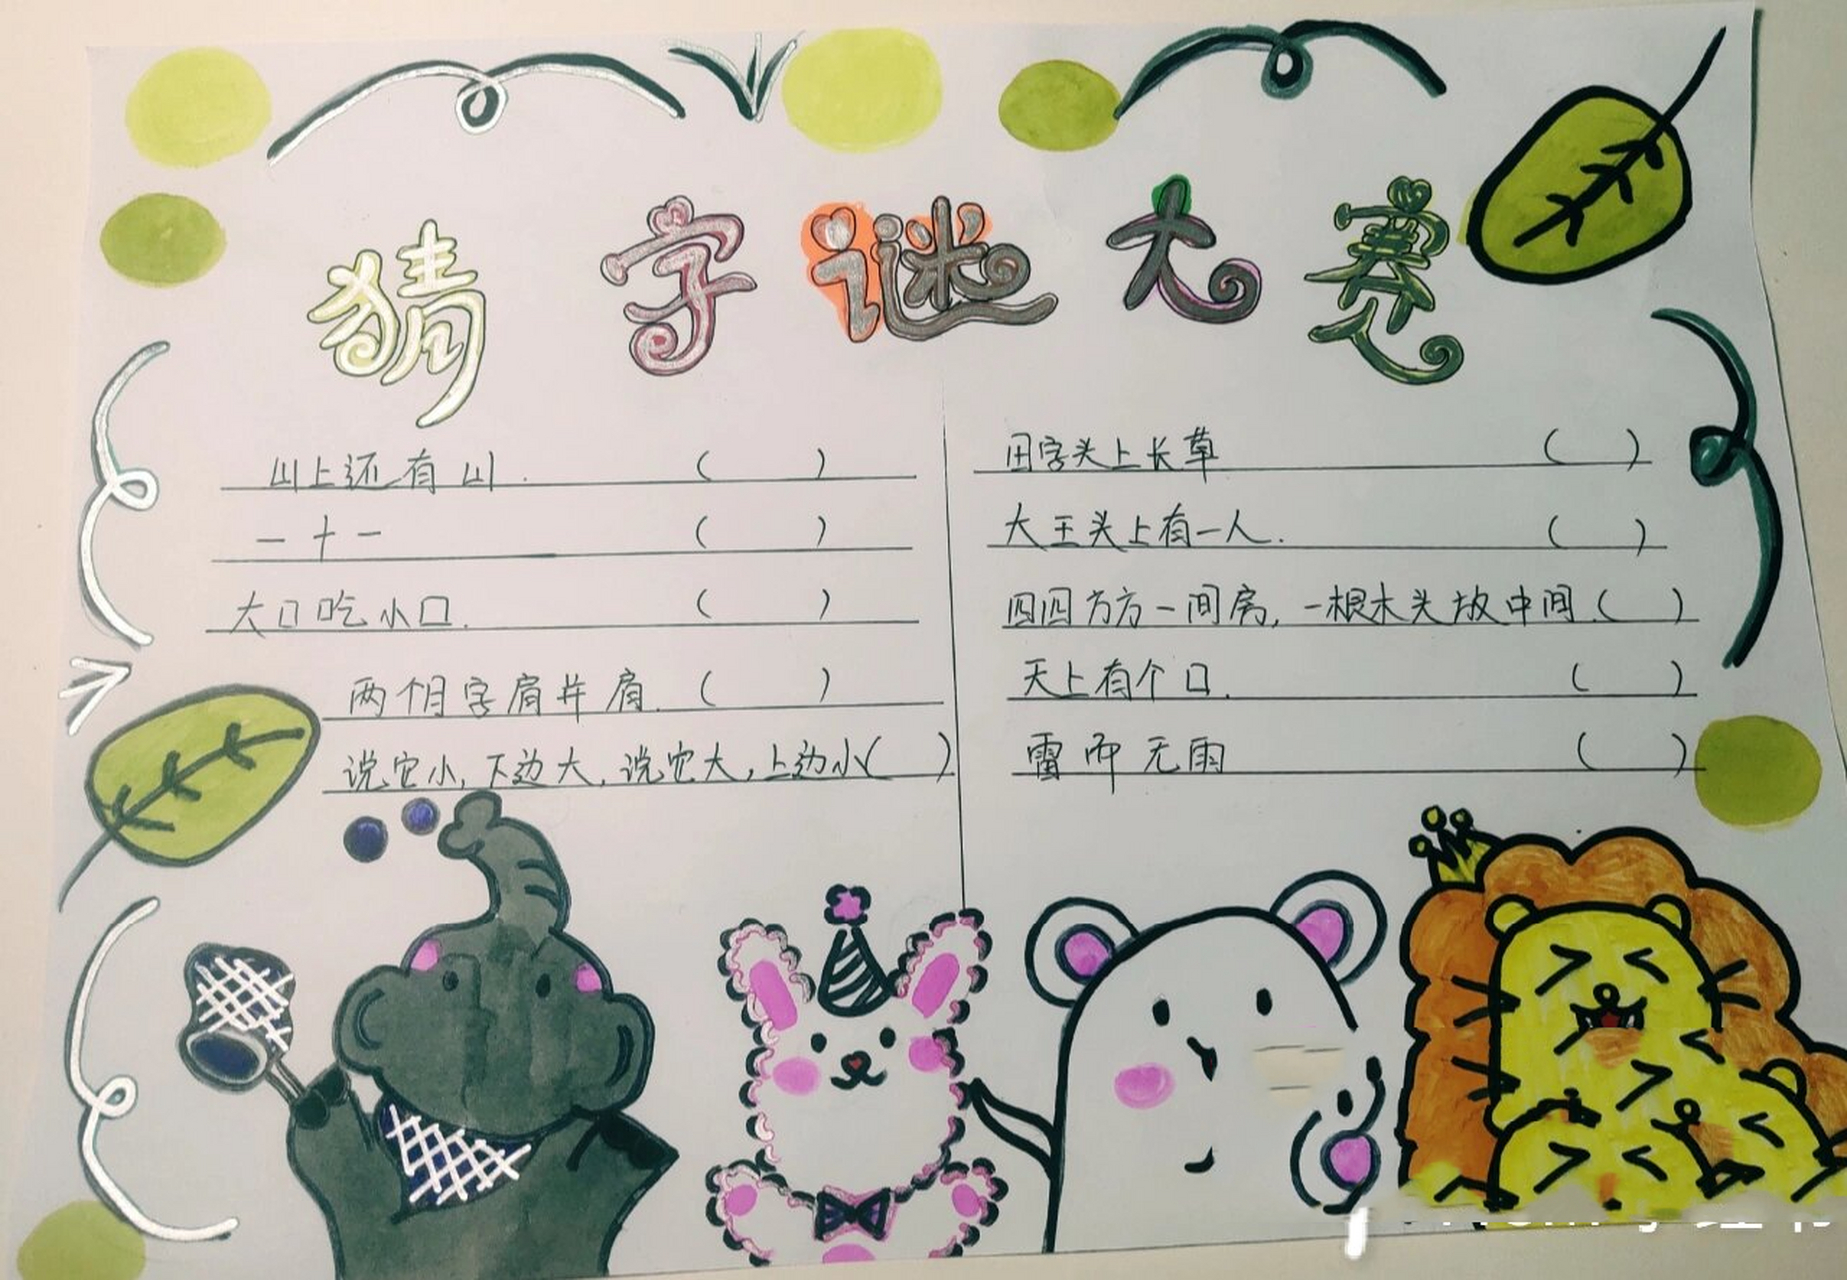 猜字谜大赛
山上还有山. (  )
一十一 (  )
大口吃小口. (  )
两个月字肩并肩. (  )
说它小,下边大,说它大,上边小(  )
田字头上长草 (  )
大王头上有一人. (  )
四四方方一间房,一根木头放中间.(  )
天上有个口. (  )
雷雨无雨 (  )